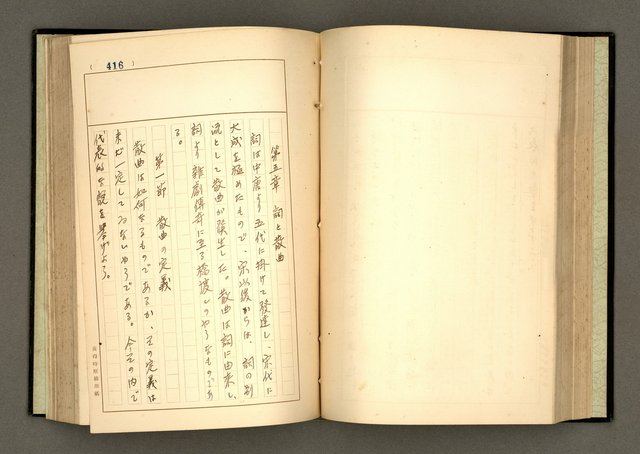 ( 416 )
第五章 詞と散曲
詞は中唐より五代に掛けて發達し、宋代に
大成を極めたもので、宋以後からは、詞の別
流として散曲が發生した。散曲は詞に由来し、
詞より雜劇傳奇に至る橋渡しのやうなものであ
る。
第一節 散曲の定義
散曲は如何なるものであるか、その定義は
未だ一定してゐないやうである。今その内で
代表的な説を擧げよう。